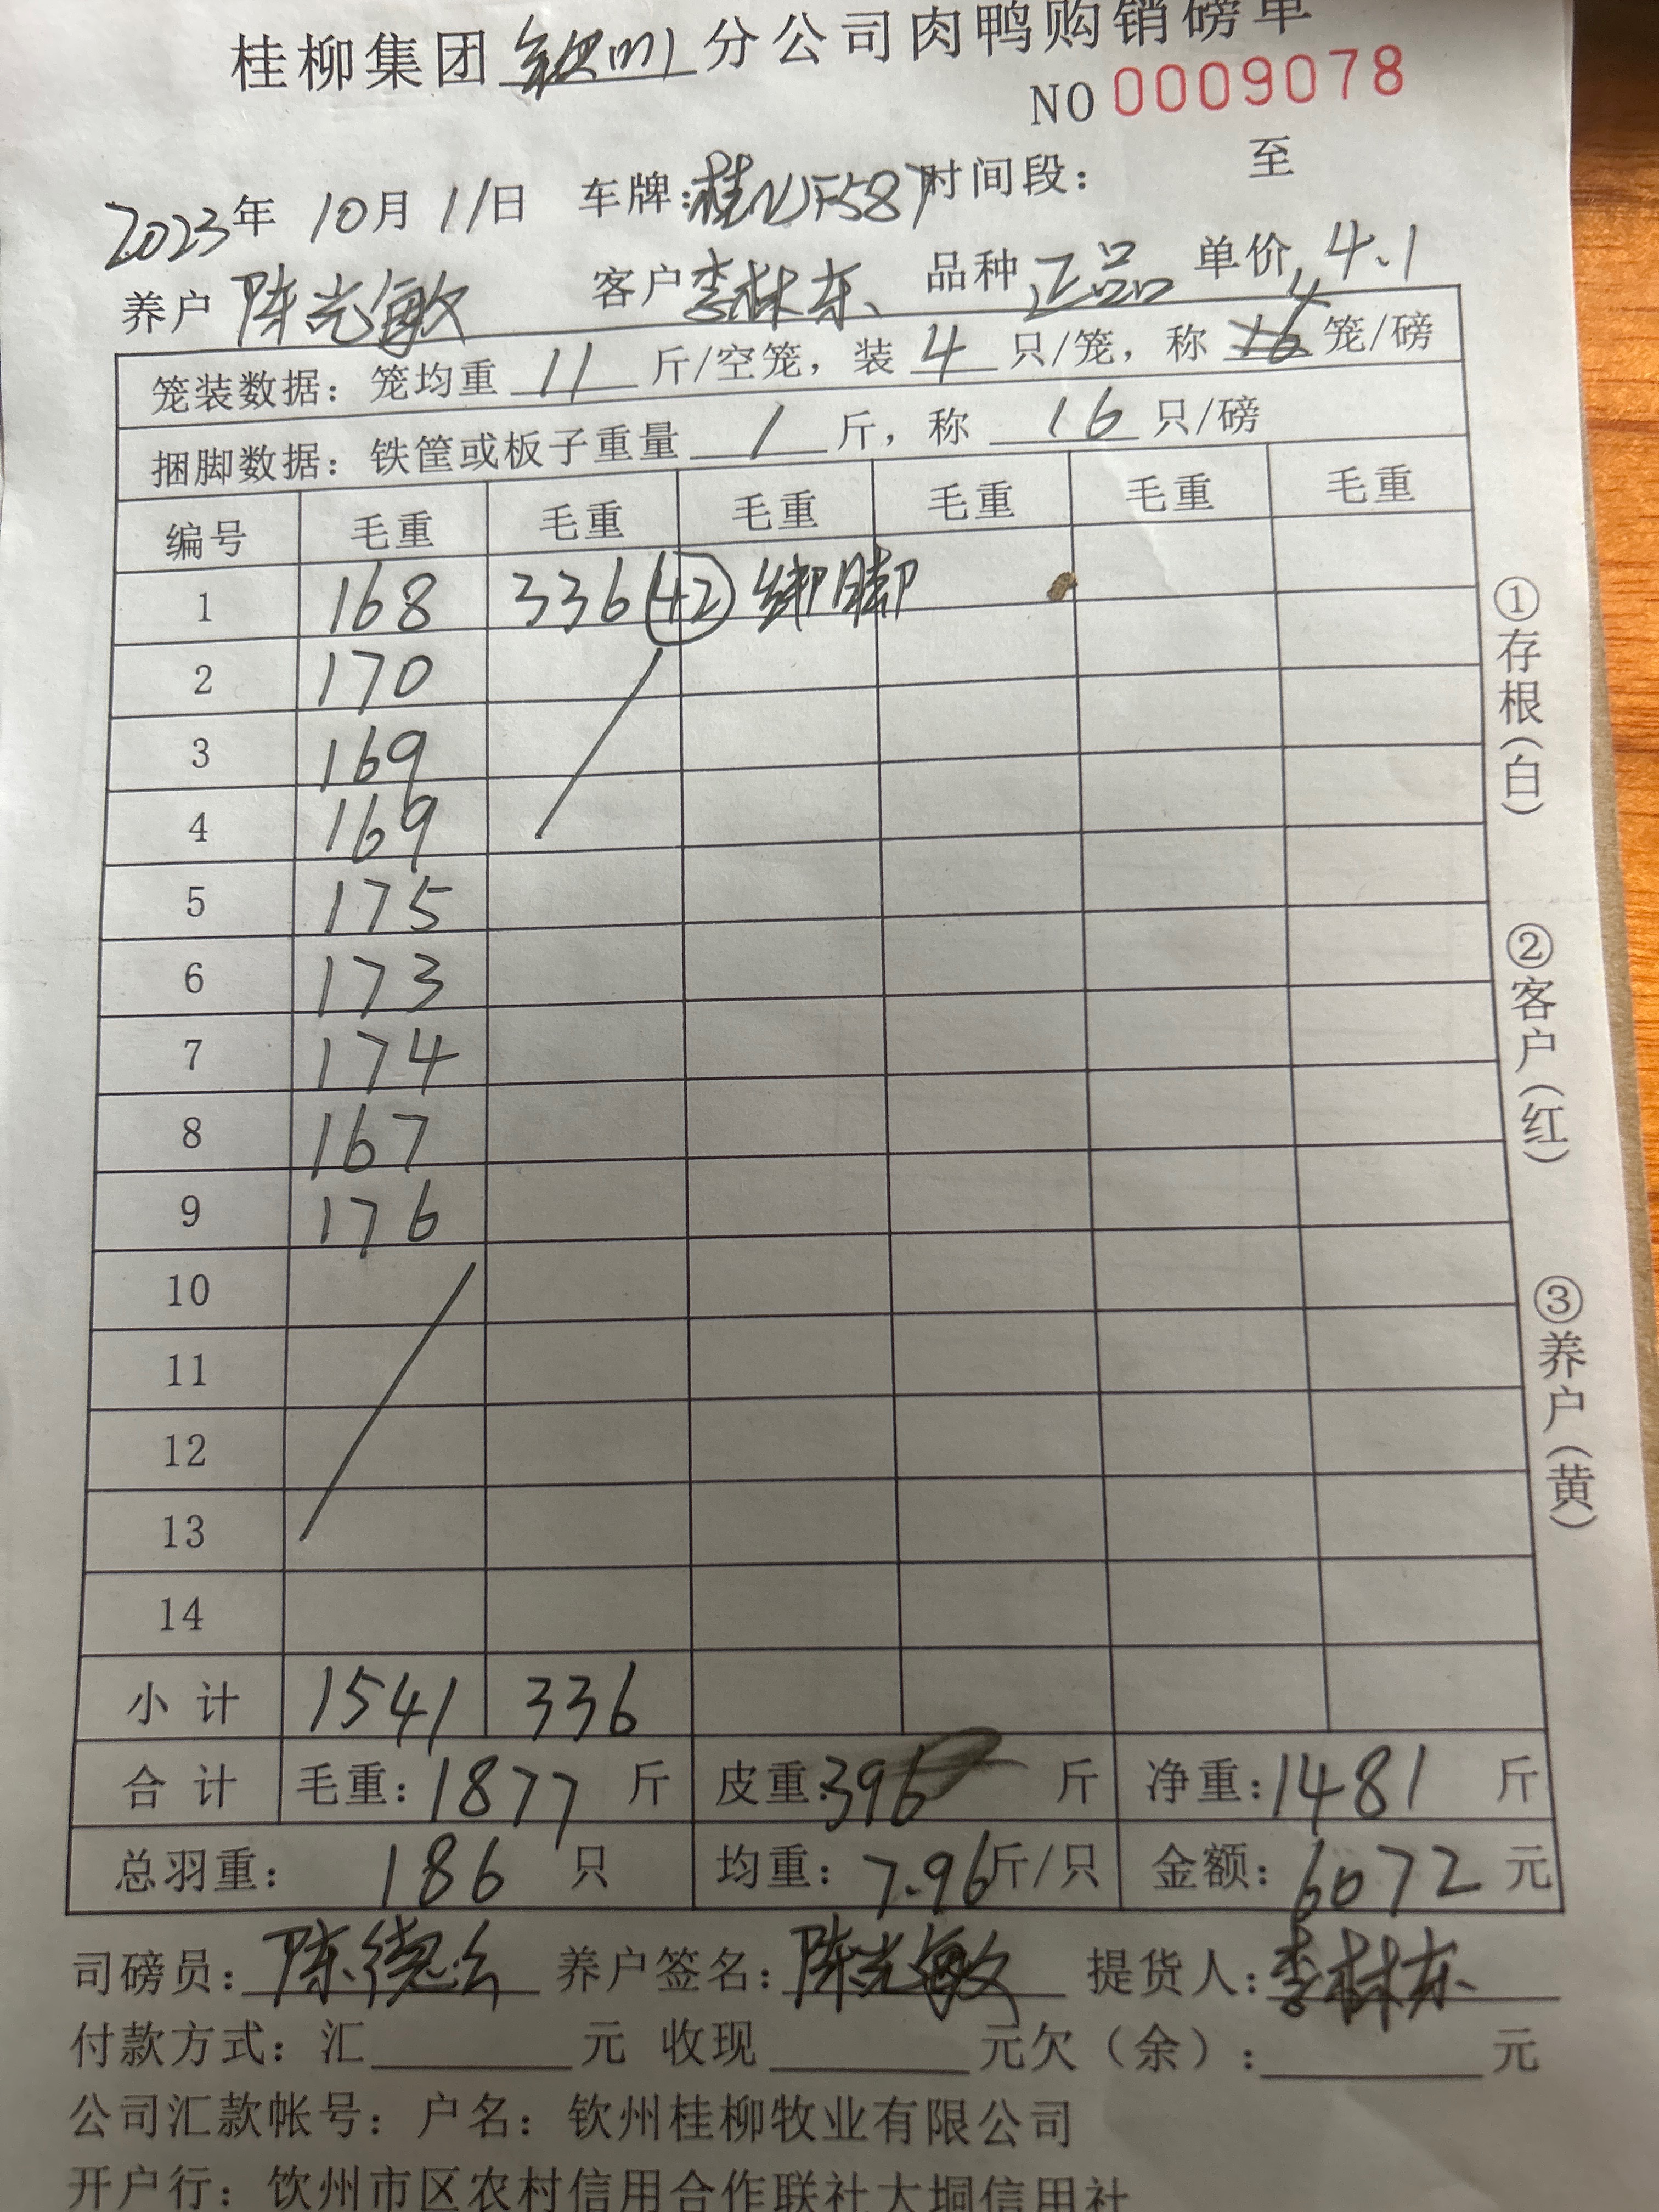 桂柳集团钦州分公司肉鸭购销磅单
NO 0009078
2023年 10月 11日 车牌:桂NJF587 时间段: 至
养户 陈光敏 客户 李林东 品种 正品 单价 4.1
笼装数据: 笼均重 11 斤/空笼, 装 4 只/笼, 称 4 笼/磅
捆脚数据: 铁筐或板子重量 1 斤, 称 16 只/磅
编号 毛重 毛重 毛重 毛重 毛重 毛重
1 168 336 (42) 绑脚
2 170
3 169
4 169
5 175
6 173
7 174
8 167
9 176
10
11
12
13
14
小计 1541 336
合计 毛重: 1877 斤 皮重: 396 斤 净重: 1481 斤
总羽重: 186 只 均重: 7.96 斤/只 金额: 6072 元
司磅员: 陈德 养户签名: 陈光敏 提货人: 李林东
付款方式: 汇 元 收现 元 欠(余): 元
公司汇款帐号: 户名: 钦州桂柳牧业有限公司
开户行: 钦州市区农村信用合作联社大垌信用社
①存根(白)
②客户(红)
③养户(黄)